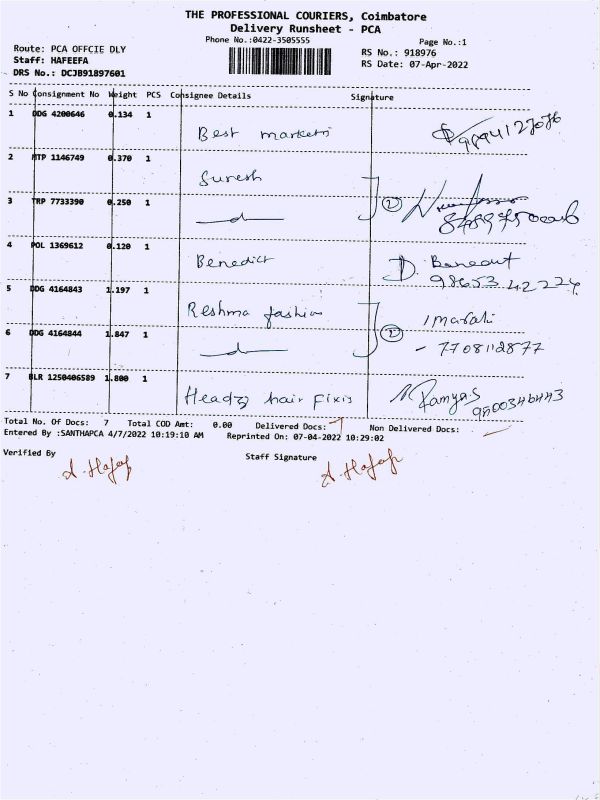 THE PROFESSIONAL COURIERS, Coimbatore
Delivery Runsheet - PCA
Phone No.:0422-3505555
Page No.:1
Route: PCA OFFCIE DLY
RS No.: 918976
Staff: HAFEEFA
RS Date: 07-Apr-2022
DRS No.: DCJB91897601
S No Consignment No Weight PCS Consignee Details Signature
1 DDG 4200646 0.134 1
Best marketri
2 MTP 1146749 0.370 1
Suresh
3 TRP 7733390 0.250 1
2
4 POL 1369612 0.120 1
Benedict D.
98653 42224
5 DDG 4164843 1.197 1
Reshma fashion
6 DDG 4164844 1.847 1
2
- 7708112877
7 BLR 1250406589 1.800 1
Headzy hair fixis Ramya.S
Total No. Of Docs: 7 Total COD Amt: 0.00 Delivered Docs: 7 Non Delivered Docs: —
Entered By :SANTHAPCA 4/7/2022 10:19:10 AM Reprinted On: 07-04-2022 10:29:02
Verified By Staff Signature